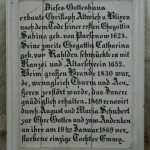 Dieses Gotteshaus
erbaute Christoph Adwich v. Bliren
nach dem Tode seiner ersten Ehegattin
Sabina geb. von Parsenow 1625.
Seine zweite Ehegattin Catharina
geb. von Kahlden schmückte es mit
Kanzel und Altarschrein 1652.
Beim großen Brande 1830 war
d. wenngleich Thurm und Aeu-
ßeres zerstört wurde, das Innere
gnädiglich erhalten. 1869 renovirt
durch August und Maria Schubert
zur Ehre Gottes und zum Andenken
an ihre am 19ten Januar 1849 ver-
storbene einzige Tochter Emmy.